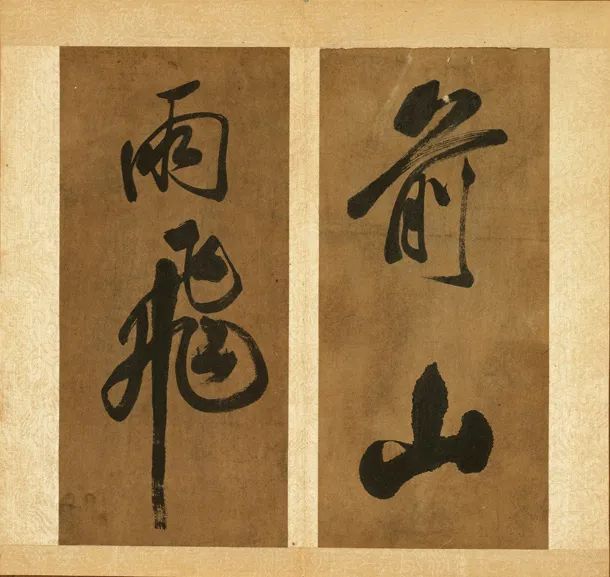 前山
雨飛